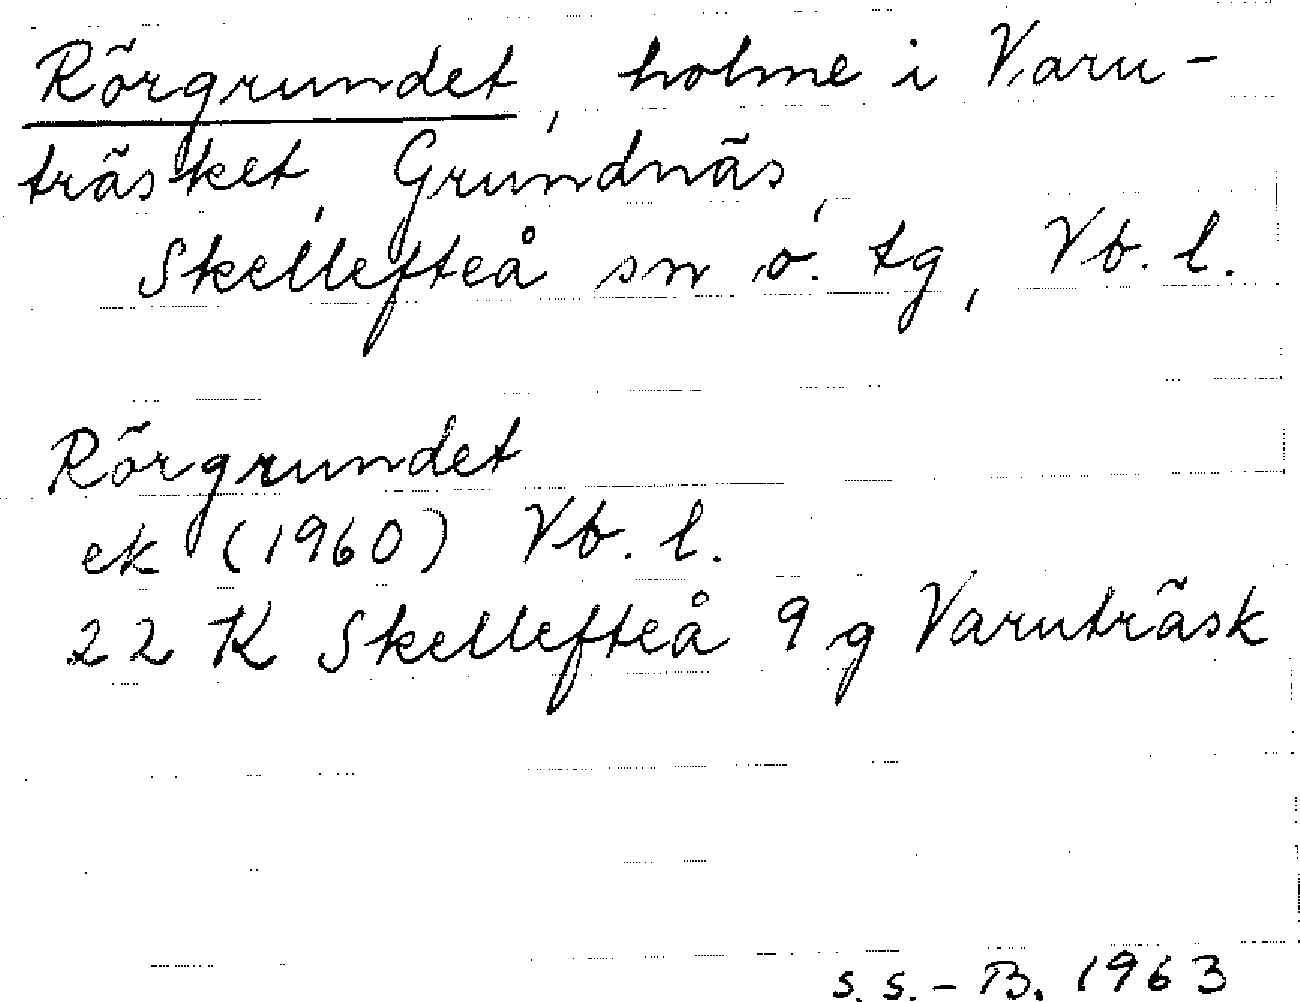 Rörgrundet, holme i Varu-
träsket, Grundnäs,
Skellefteå sn o. tg, Vb. l.
Rörgrundet
ek (1960) Vb. l.
22 K Skellefteå 9 g Varuträsk
S. S. - B. 1963